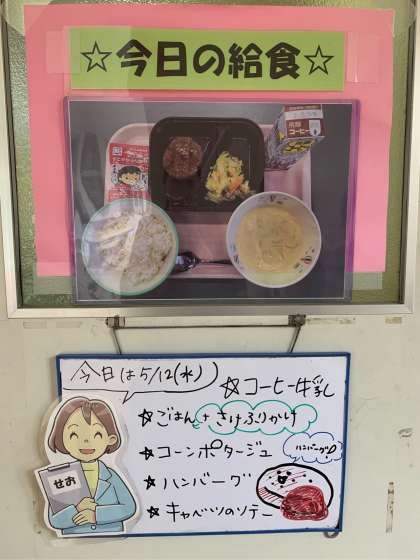 ☆今日の給食☆
コーヒー
今日は5/12(水)
☆コーヒー牛乳
★ごはん+さけふりかけ
★コーンポタージュ
ハンバーグ
★ハンバーグ
★キャベツのソテー
せお